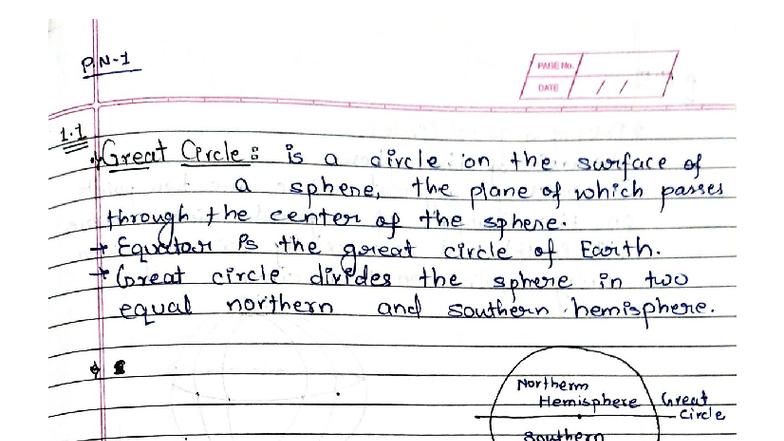 P.N-1
PAGE No.
DATE / /
1.1
Great Circle : is a circle on the surface of
a sphere, the plane of which passes
through the center of the sphere.
→ Equator is the great circle of Earth.
→ Great circle divides the sphere in two
equal northern and southern hemisphere.
Northern
Hemisphere Great
Circle
Southern